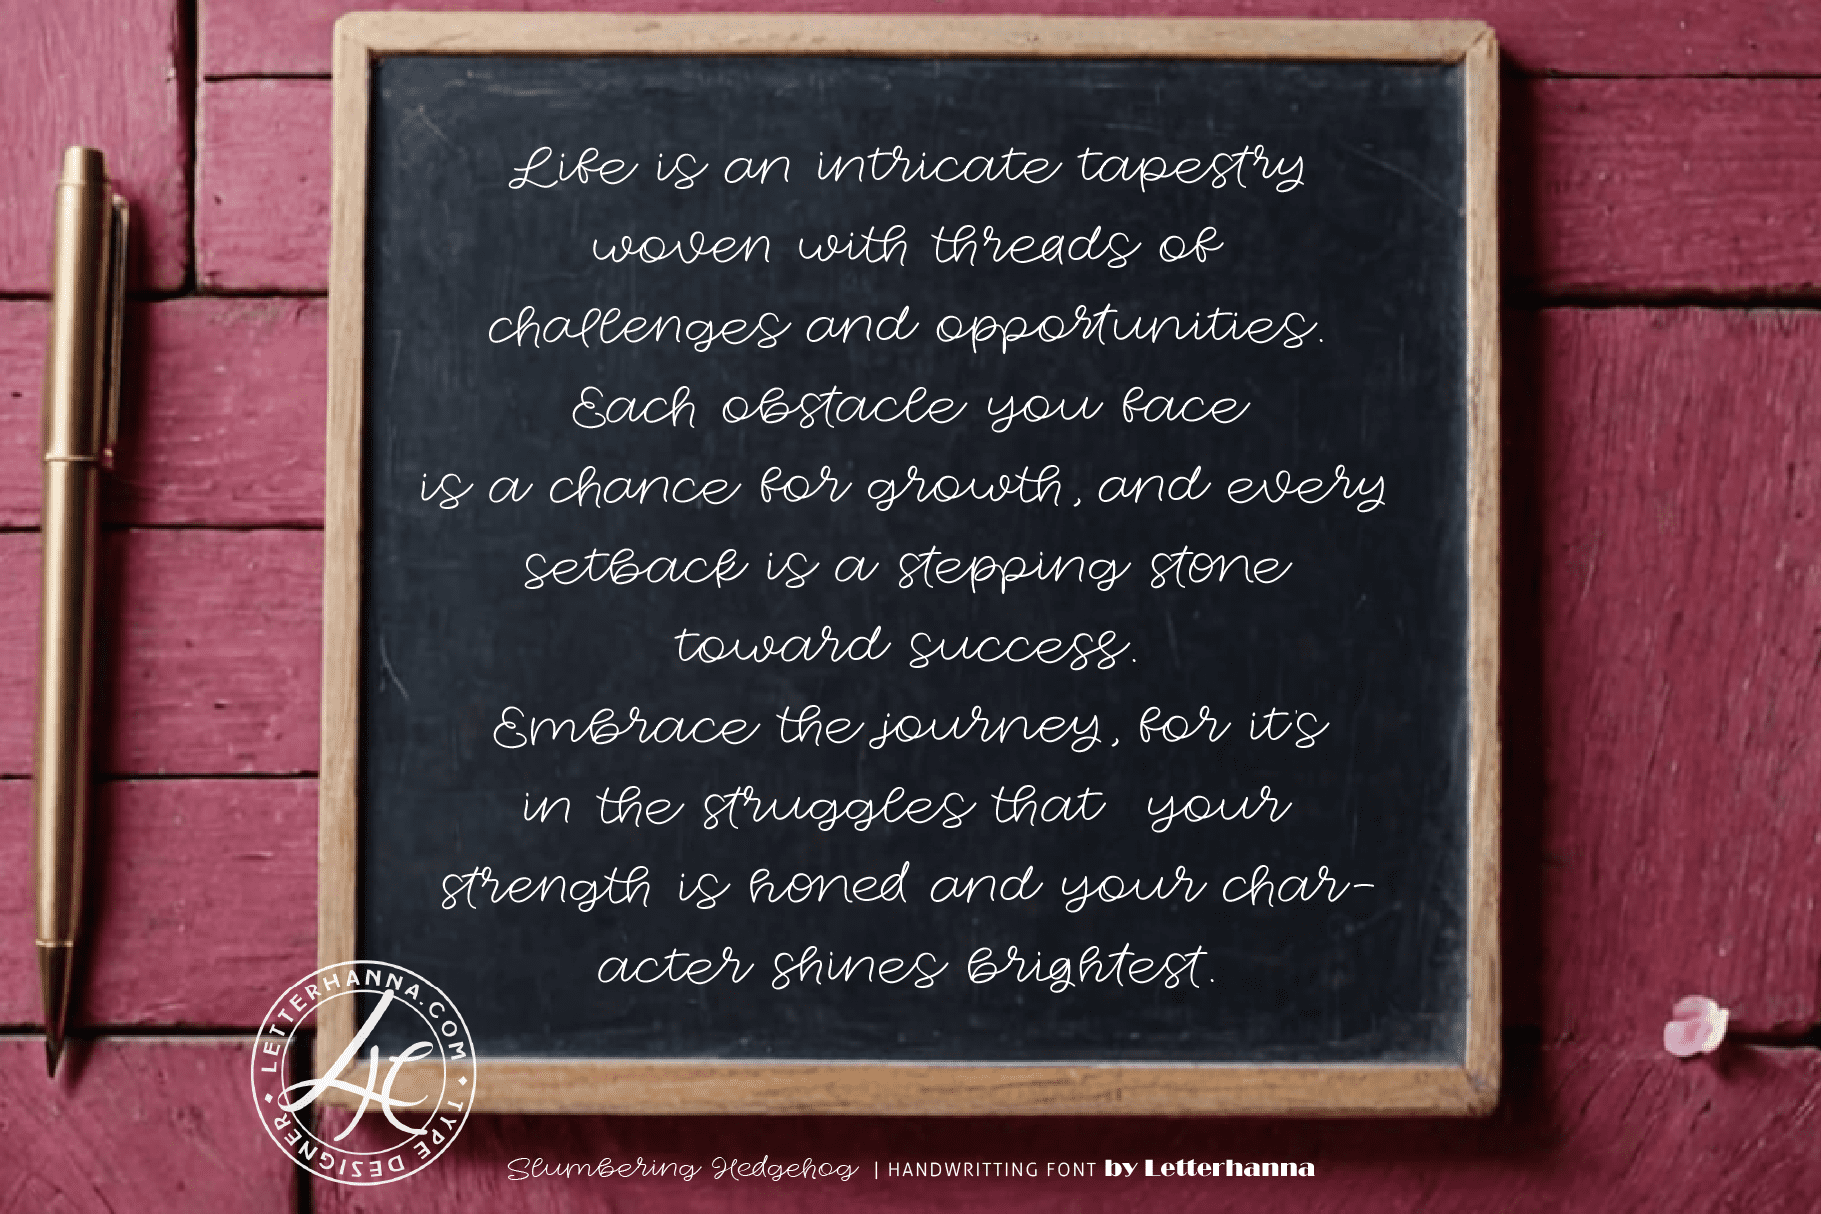 Life is an intricate tapestry
woven with threads of
challenges and opportunities.
Each obstacle you face
is a chance for growth, and every
setback is a stepping stone
toward success.
Embrace the journey, for it's
in the struggles that  your
strength is honed and your char-
acter shines brightest.
LETTERHANNA.COM • TYPE DESIGNER •
LH
Slumbering Hedgehog | HANDWRITTING FONT by Letterhanna